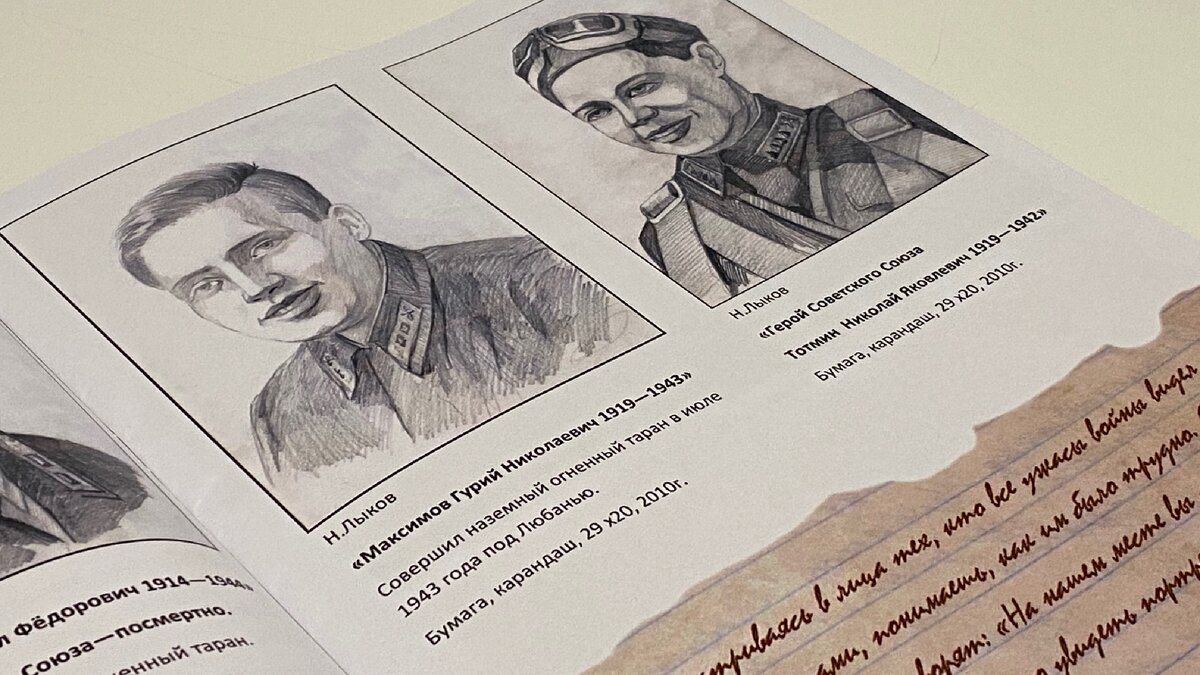 Н.Лыков
«Герой Советского Союза
Тотмин Николай Яковлевич 1919—1942»
Бумага, карандаш, 29 х20, 2010г.
Н.Лыков
«Максимов Гурий Николаевич 1919—1943»
Совершил наземный огненный таран в июле
1943 года под Любанью.
Бумага, карандаш, 29 х20, 2010г.
Фёдорович 1914—1944»
Союза—посмертно.
таран.
в лица тех, кто все ужасы войны видел
понимаешь, как им было трудно.
«На нашем месте вы
увидеть